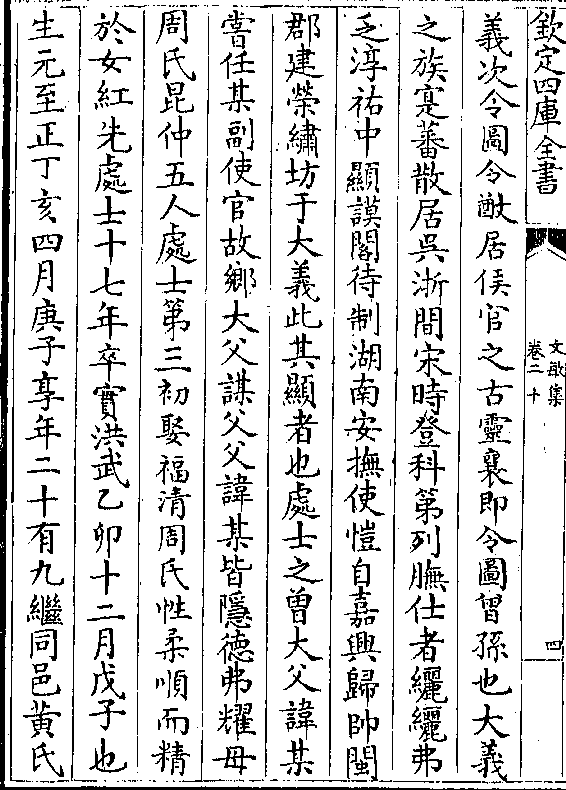 欽定四庫全書
文敏集
卷二十
四
義次令圖令猷居侯官之古靈襄即令圖曾孫也大義
之族寔蕃散居吳浙間宋時登科第列膴仕者纚纚弗
乏淳祐中顯謨閣待制湖南安撫使愷自嘉興歸帥閩
郡建榮繡坊于大義此其顯者也處士之曾大父諱某
嘗任某副使官故鄉大父謀父父諱某皆隱德弗耀母
周氏昆仲五人處士第三初娶福清周氏性柔順而精
於女紅先處士十七年卒實洪武乙卯十二月戊子也
生元至正丁亥四月庚子享年二十有九繼同邑黄氏